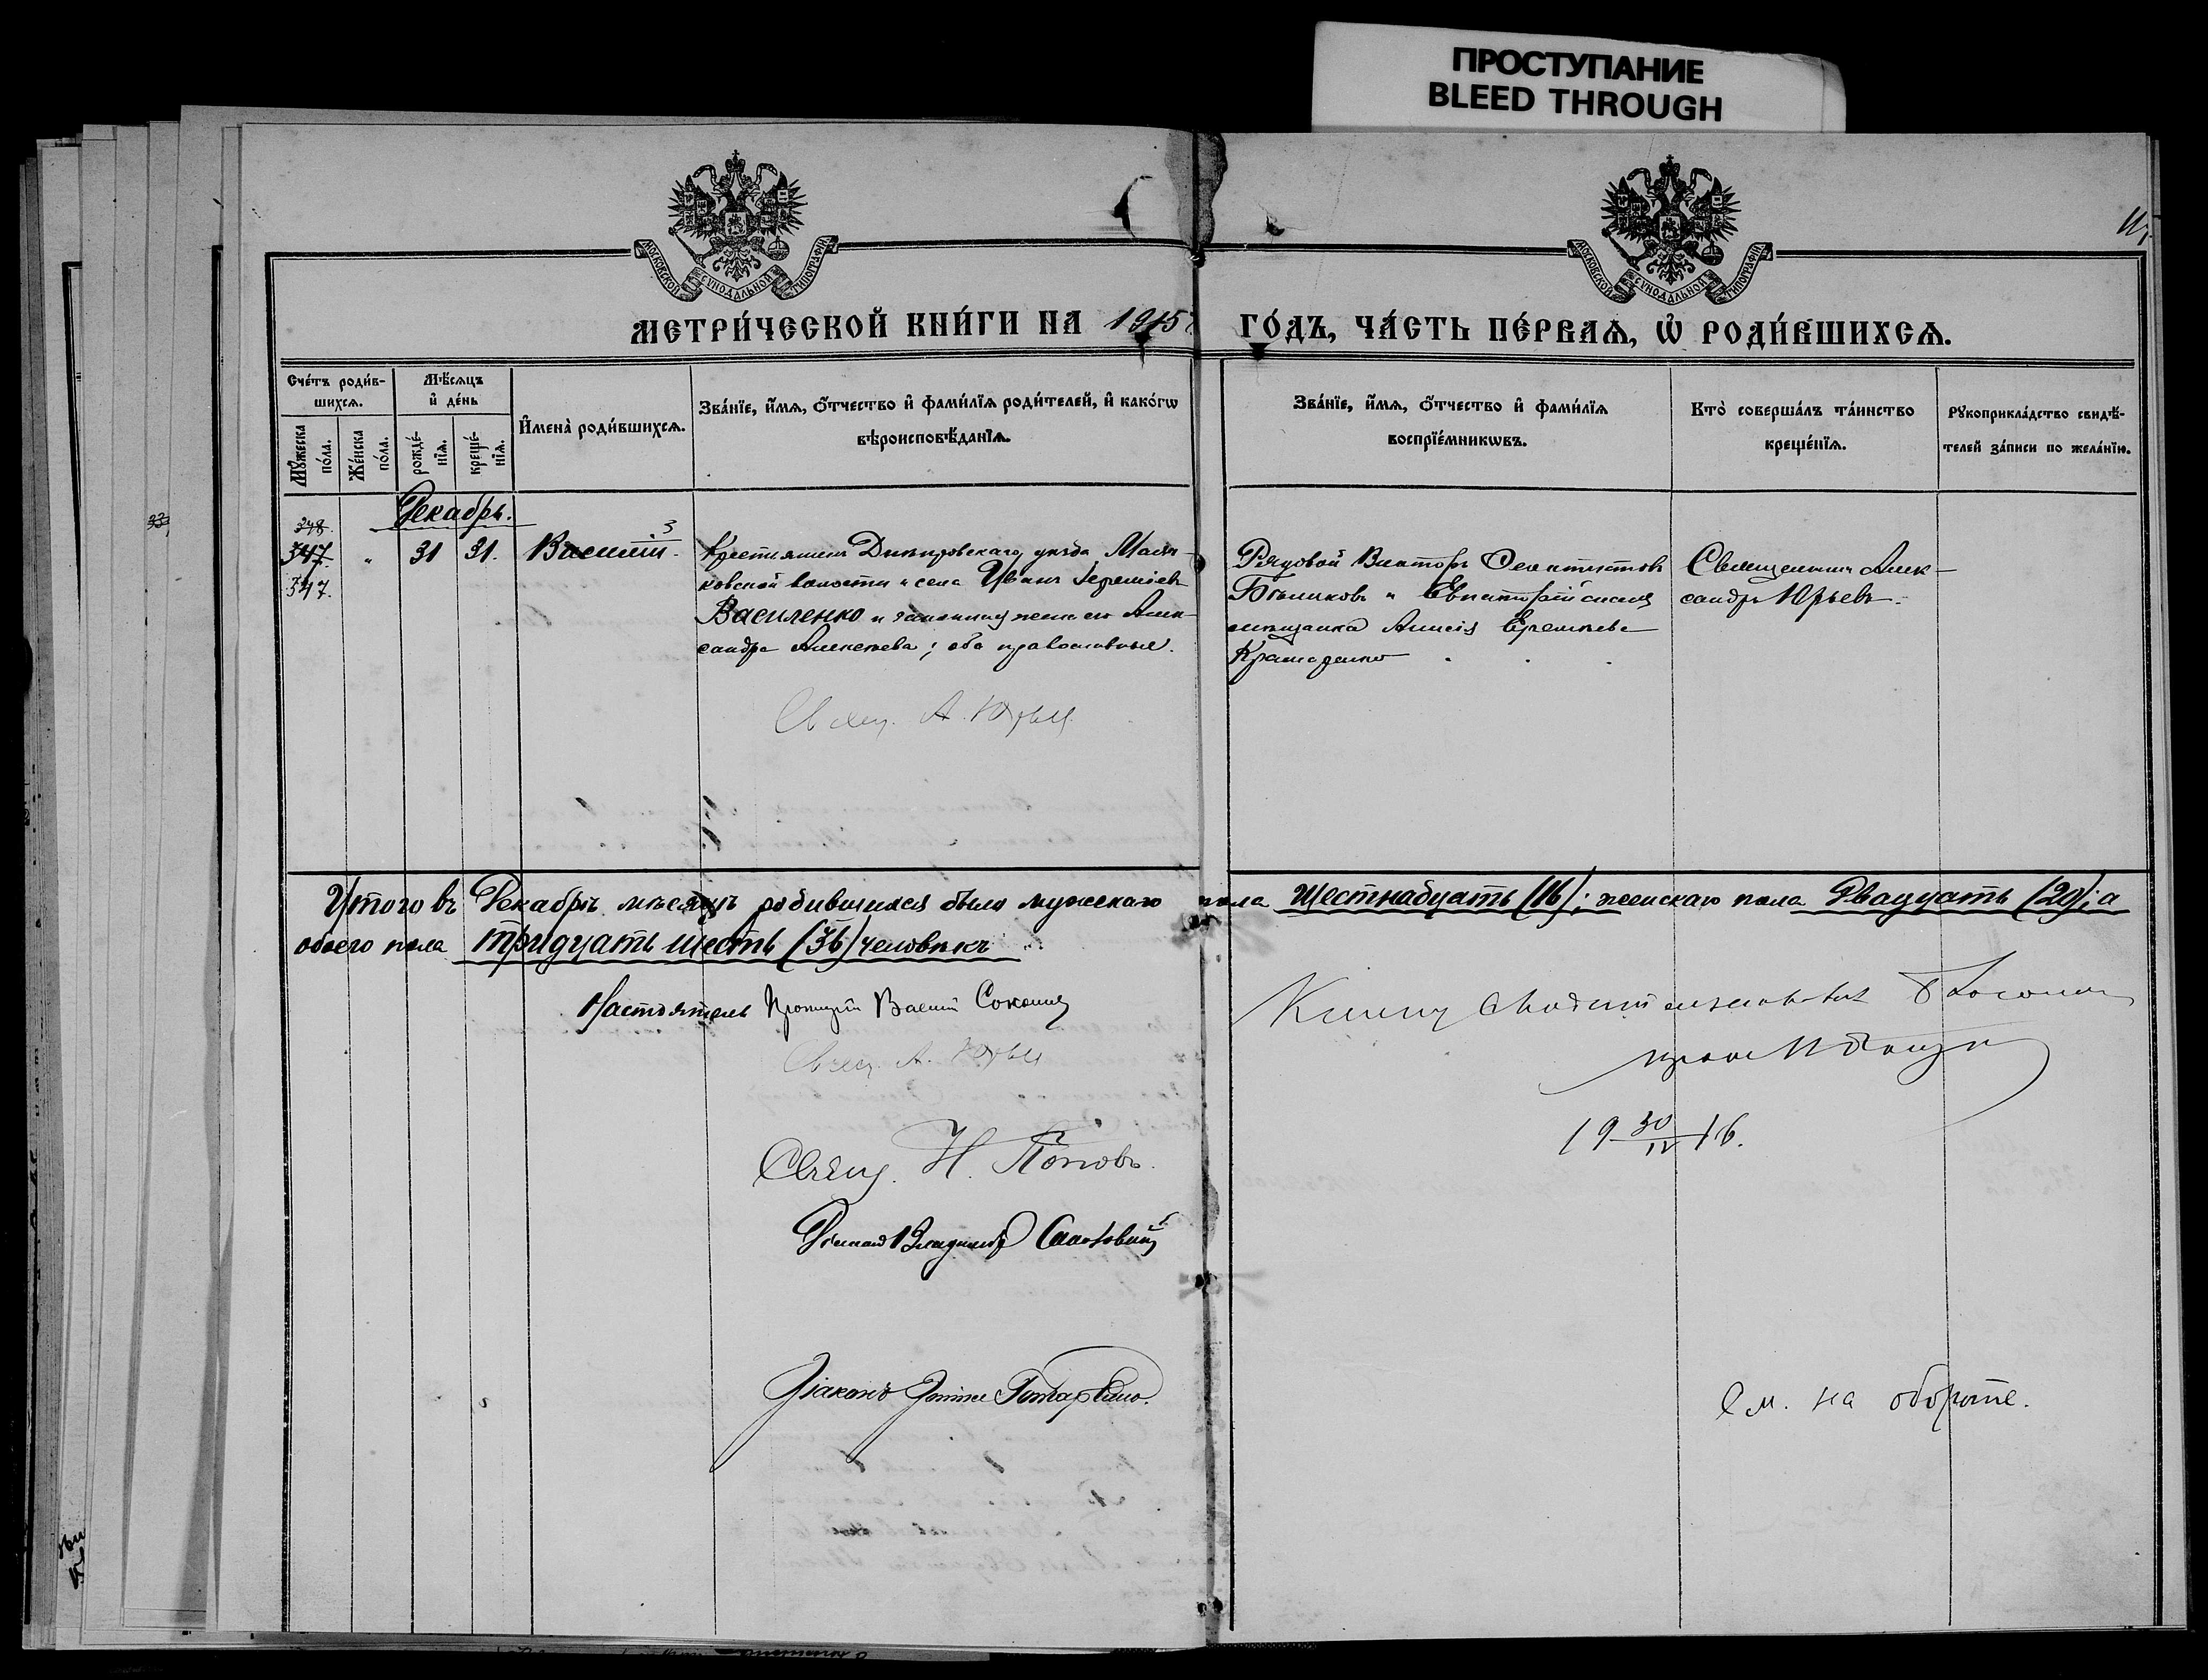 ПРОСТУПАНИЕ
BLEED THROUGH
МОСКОВСКОЙ СѴНОДАЛЬНОЙ ТИПОГРАФІИ
МОСКОВСКОЙ СѴНОДАЛЬНОЙ ТИПОГРАФІИ
МЕТРИ́ЧЕСКОЙ КНИ́ГИ НА 1915 ГО́ДЪ, ЧА́СТЬ ПЕ́РВАѦ, Ѡ РОДИ́ВШИХСѦ.
Сче́тъ роди́в-
шихсѧ.
Мѣ́сѧцъ
и де́нь
Мꙋ́жеска
по́ла.
Же́нска
по́ла.
рожде́-
нїѧ.
креще́-
нїѧ.
И҆мена̀ роди́вшихсѧ.
Зва́нїе, и҆́мѧ, ѻ҆́тчество и҆ фами́лїѧ роди́телей, и҆ како́гѡ
вѣроисповѣ́данїѧ.
Зва́нїе, и҆́мѧ, ѻ҆́тчество и҆ фами́лїѧ
воспрїе́мникѡвъ.
Кто̀ соверша́лъ та́инство
креще́нїѧ.
Рꙋкоприкла́дство свидѣ́-
телей за́писи по жела́нїю.
Декабрь.
348.
347.
347.
„ 31 31. Василій. 3
Крестьянинъ Днѣпровскаго уѣзда Маяч-
ковской волости и села Иванъ Іереміевъ
Василенко и законная жена его Алек-
сандра Алексѣева; оба православные.
Рядовой Викторъ Феоктистовъ
Бѣликовъ и Евпаторійская
мѣщанка Анисія Еремѣева
Священникъ Алек-
сандръ Юрьевъ.
Свящ. А. Юрьев
Итого въ Декабрѣ мѣсяцѣ родившихся было мужскаго пола Шестнадцать (16); женскаго пола Двадцать (20); а
обоего пола тридцать шесть (36) человѣкъ.
Настоятель Протоіерей Василій
Свящ. А. Юрьев
Свящ. Н. Поповъ.
Діаконъ Владиміръ
Діаконъ
Книгу
19 30/IV 16.
См. на оборотѣ.